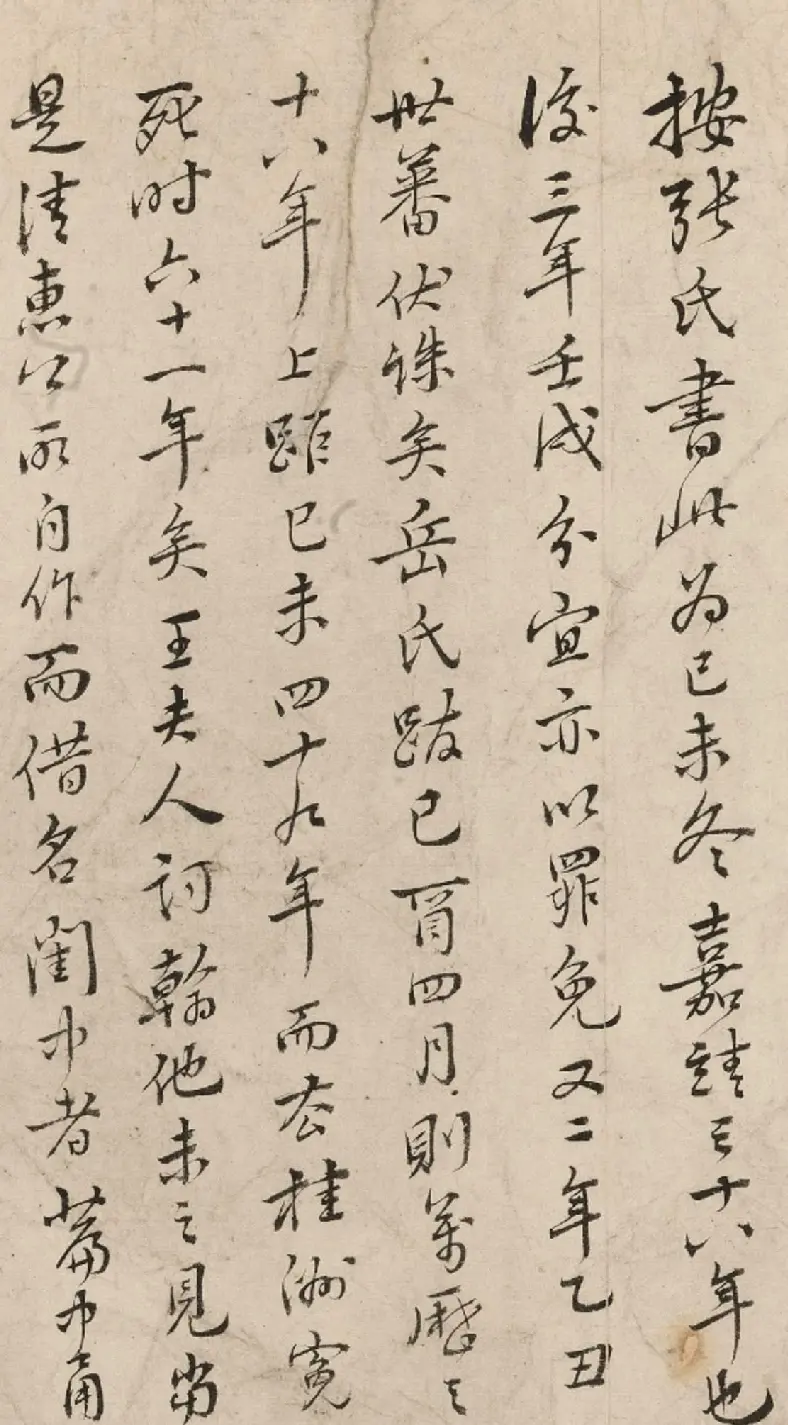 按張氏書此為己未冬嘉靖三十八年也
後三年壬戌分宜亦以罪免又二年乙丑
世蕃伏誅矣岳氏跋己酉四月則萬曆三
十八年上距己未四十九年而去桂洲冤
死時六十一年矣王夫人詞翰他未之見當
是清惠公所自作而借名閨中者篇中用